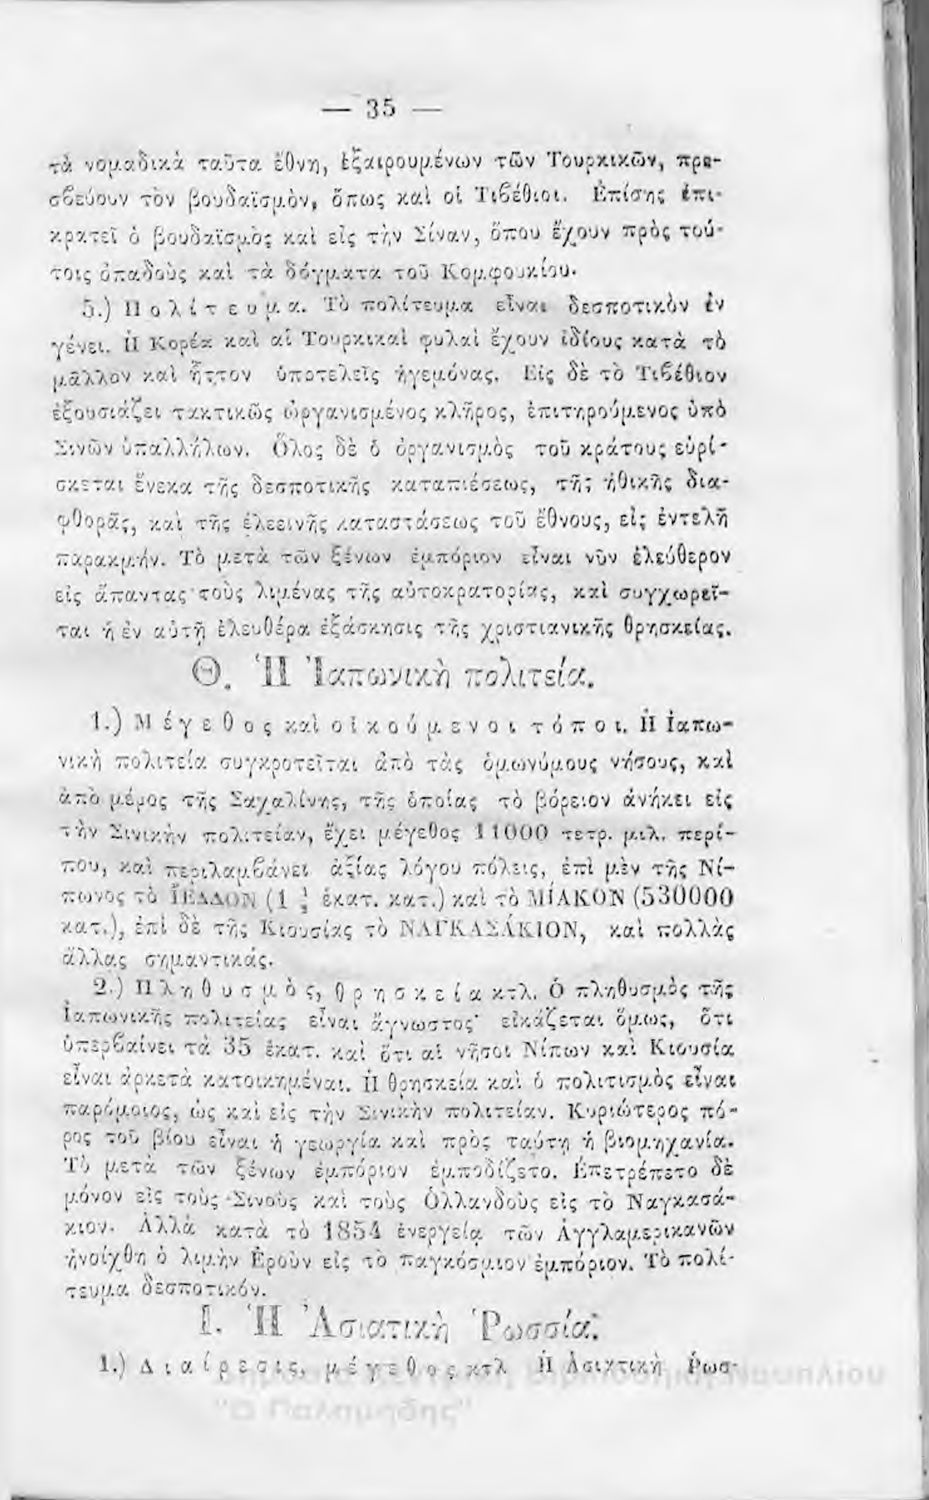 — 35 —
τὰ νομαδικὰ ταῦτα ἔθνη, ἐξαιρουμένων τῶν Τουρκικῶν, πρε-
σβεύουν τὸν βουδαϊσμὸν, ὅπως καὶ οἱ Τιβέθιοι. Ἐπίσης ἐπι-
κρατεῖ ὁ βουδαϊσμὸς καὶ εἰς τὴν Σίναν, ὅπου ἔχουν πρὸς τού-
τοις ὀπαδοὺς καὶ τὰ δόγματα τοῦ Κομφουκίου.
5.) Πολίτευμα. Τὸ πολίτευμα εἶναι δεσποτικὸν ἐν
γένει. Ἡ Κορέα καὶ αἱ Τουρκικαὶ φυλαὶ ἔχουν ἰδίους κατὰ τὸ
μᾶλλον καὶ ἧττον ὑποτελεῖς ἡγεμόνας. Εἰς δὲ τὸ Τιβέθιον
ἐξουσιάζει τακτικῶς ὠργανισμένος κλῆρος, ἐπιτηρούμενος ὑπὸ
Σινῶν ὑπαλλήλων. Ὅλος δὲ ὁ ὀργανισμὸς τοῦ κράτους εὑρί-
σκεται ἕνεκα τῆς δεσποτικῆς καταπιέσεως, τῆς ἠθικῆς δια-
φθορᾶς, καὶ τῆς ἐλεεινῆς καταστάσεως τοῦ ἔθνους, εἰς ἐντελῆ
παρακμήν. Τὸ μετὰ τῶν ξένων ἐμπόριον εἶναι νῦν ἐλεύθερον
εἰς ἅπαντας τοὺς λιμένας τῆς αὐτοκρατορίας, καὶ συγχωρεῖ-
ται ἡ ἐν αὐτῇ ἐλευθέρα ἐξάσκησις τῆς χριστιανικῆς θρησκείας.
Θ. Ἡ Ἰαπωνικὴ πολιτεία.
1.) Μέγεθος καὶ οἰκούμενοι τόποι. Ἡ Ἰαπω-
νικὴ πολιτεία συγκροτεῖται ἀπὸ τὰς ὁμωνύμους νήσους, καὶ
ἀπὸ μέρος τῆς Σαχαλίνης, τῆς ὁποίας τὸ βόρειον ἀνήκει εἰς
τὴν Σινικὴν πολιτείαν, ἔχει μέγεθος 11000 τετρ. μιλ. περί-
που, καὶ περιλαμβάνει ἀξίας λόγου πόλεις, ἐπὶ μὲν τῆς Νί-
πωνος τὸ ΙΕΔΔΟΝ (1 ½ ἑκατ. κατ.) καὶ τὸ ΜΙΑΚΟΝ (530000
κατ.), ἐπὶ δὲ τῆς Κιουσίας τὸ ΝΑΓΚΑΣΑΚΙΟΝ, καὶ πολλὰς
ἄλλας σημαντικάς.
2.) Πληθυσμὸς, θρησκεία κτλ. Ὁ πληθυσμὸς τῆς
Ἰαπωνικῆς πολιτείας εἶναι ἄγνωστος· εἰκάζεται ὅμως, ὅτι
ὑπερβαίνει τὰ 35 ἑκατ. καὶ ὅτι αἱ νῆσοι Νίπων καὶ Κιουσία
εἶναι ἀρκετὰ κατοικημέναι. Ἡ θρησκεία καὶ ὁ πολιτισμὸς εἶναι
παρόμοιος, ὡς καὶ εἰς τὴν Σινικὴν πολιτείαν. Κυριώτερος πό-
ρος τοῦ βίου εἶναι ἡ γεωργία καὶ πρὸς ταύτῃ ἡ βιομηχανία.
Τὸ μετὰ τῶν ξένων ἐμπόριον ἐμποδίζετο. Ἐπετρέπετο δὲ
μόνον εἰς τοὺς Σινοὺς καὶ τοὺς Ὁλλανδοὺς εἰς τὸ Ναγκασά-
κιον. Ἀλλὰ κατὰ τὸ 1854 ἐνεργείᾳ τῶν Ἀγγλαμερικανῶν
ἠνοίχθη ὁ λιμὴν Ἐροὺν εἰς τὸ παγκόσμιον ἐμπόριον. Τὸ πολί-
τευμα δεσποτικόν.
Ι. Ἡ Ἀσιατικὴ Ῥωσσία.
1.) Διαίρεσις, μέγεθος κτλ Ἡ Ἀσιατικὴ Ῥωσ-
Δημόσια Κεντρική Βιβλιοθήκη Ναυπλίου
"Ο Παλαμήδης"